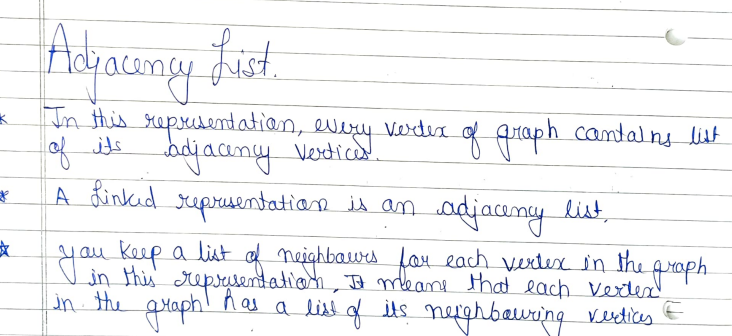 Adjacency List.
* In this representation, every vertex of graph contains list
of its adjaceny vertices.
* A Linked representation is an adjacency list.
* you keep a list of neighbours for each vertex in the graph
in this representation. It means that each vertex
in the graph has a list of its neighbouring vertices